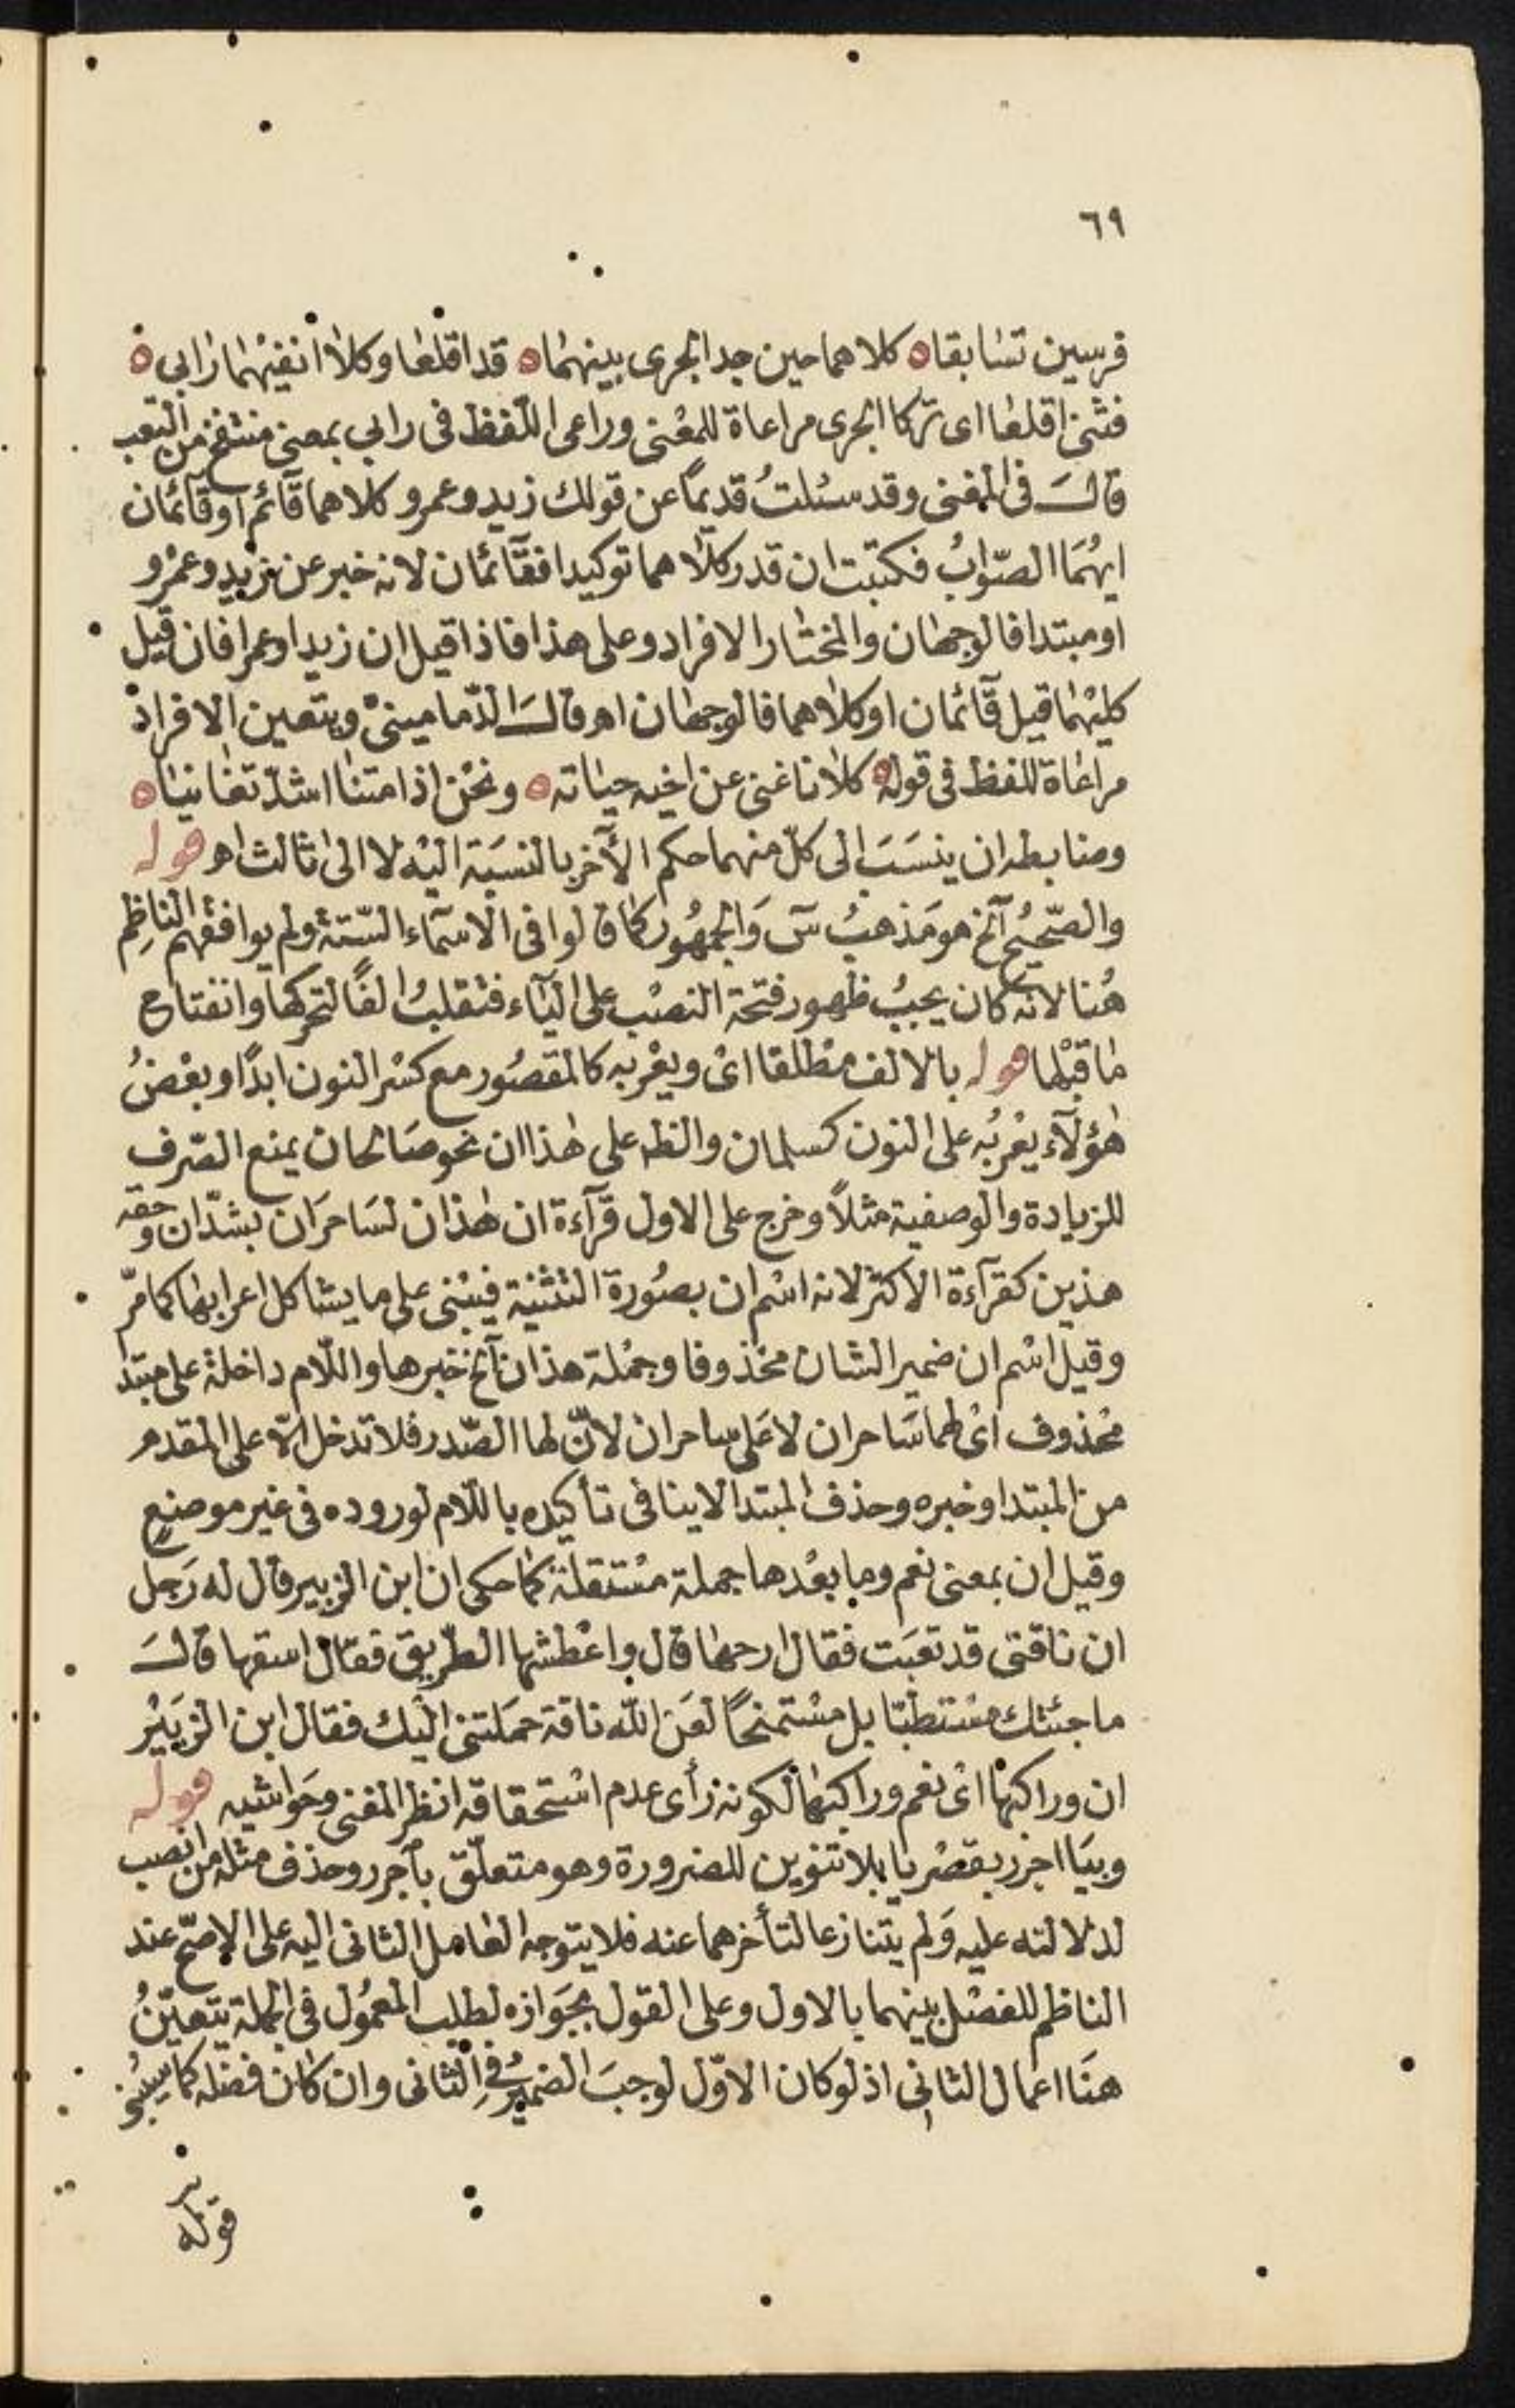 ٦٩
فرسين تسابقا ه كلاهما حين جد الجرى بينهما ه قد اقلعا وكلا انفيهما رابى ه
فثنى اقلعا اى تركا الجرى مراعاة للمعنى وراعى اللفظ فى رابى بمعنى منتفخ من التعب
قال فى المغنى وقد سئلتُ قديمًا عن قولك زيد وعمرو كلاهما قآئم او قآئمان
ايهُمَا الصّوابُ فكتبت ان قدر كلاهما توكيدا فقآئمان لانه خبر عن زيد وعمْرو
او مبتدا فالوجهان والمختار الافراد وعلى هذا فاذا قيل ان زيدا وعمرا فان قيل
كليهما قيل قآئمان او كلاهما فالوجهان اهـ وقال الدّمامينىْ ويتعين الافراد
مراعاة للفظ فى قوله ه كلانا غنى عن اخيه حياته ه ونحْن اذا متنا اشدّ تغانيا ه
وضابطه ان ينسَبَ الى كلّ منهما حكم الآخر بالنسَبة اليْه لا الى ثالث اهـ قوله
والصّحيْح آلخ هو مَذهبُ سَ وَالجمهُور كما قالوا فى الاسمآء السّتة ولم يوافقهم الناظِم
هُنا لانه كان يجبُ ظهور فتحة النصْب على اليآء فتقلبُ الفًا لتحركها وانفتاح
ما قبْلها قوله بالالف مطْلقا اىْ ويعْربه كالمقصُور مع كسْر النون ابدًا وبعْضُ
هؤلآء يعْربُه على النون كسلمان والظـ على هذا ان نحو صَالحان يمنع الصّرف
للزيادة والوصفية مثلاً وخرج على الاول قرآءة ان هذان لسَاحرَان بشدّ ان وحقه
هذين كقرآءة الاكثر لانه اسْم ان بصُورة التثنية فيبْنى على ما يشاكل اعرابها كما مرّ
وقيل اسْم ان ضمير الشان محذوفا وجمْلة هذان آلخ خبرها واللّام داخلة على مبتدا
محْذوف اىْ لهما سَاحران لا عَلى ساحران لانّ لها الصّدر فلا تدخل الّا على المقدم
من المبتدا وخبره وحذف المبتدا لا ينافى تأكيده باللّام لوروده فى غير موضعٍ
وقيل ان بمعنى نعم وما بعْدها جملة مسْتقلة كما حكى ان ابن الزبير قال له رَجل
ان ناقتى قد تعبَت فقال ارحها قال واعْطشها الطّريق فقال اسقها قال
ما جئتك مسْتطبّا بل مسْتمنحًا لعَن اللّه ناقة حمَلتنى اليْك فقال ابن الزبَيْر
ان وراكبها اىْ نعم وراكبها لكونه رأى عدم اسْتحقاقه انظر المغنى وحَواشيه قوله
وبيَا اجرر بقصْر يا بلا تنوين للضرورة وهو متعلّق بآجرر وحذف مثله من انصب
لدلالته عليه وَلم يتنازعا لتأخرهما عنه فلا يتوجه العامل الثانى اليه على الاصَحّ عند
الناظم للفصْل بينهما بالاول وعلى القول بجوَازه لطلب المعمُول فى الجملة يتعيّنُ
هنَا اعمال الثانى اذ لو كان الاوّل لوجبَ الضميْر فِى الثانى وان كان فضله كما سيْـ
قوله